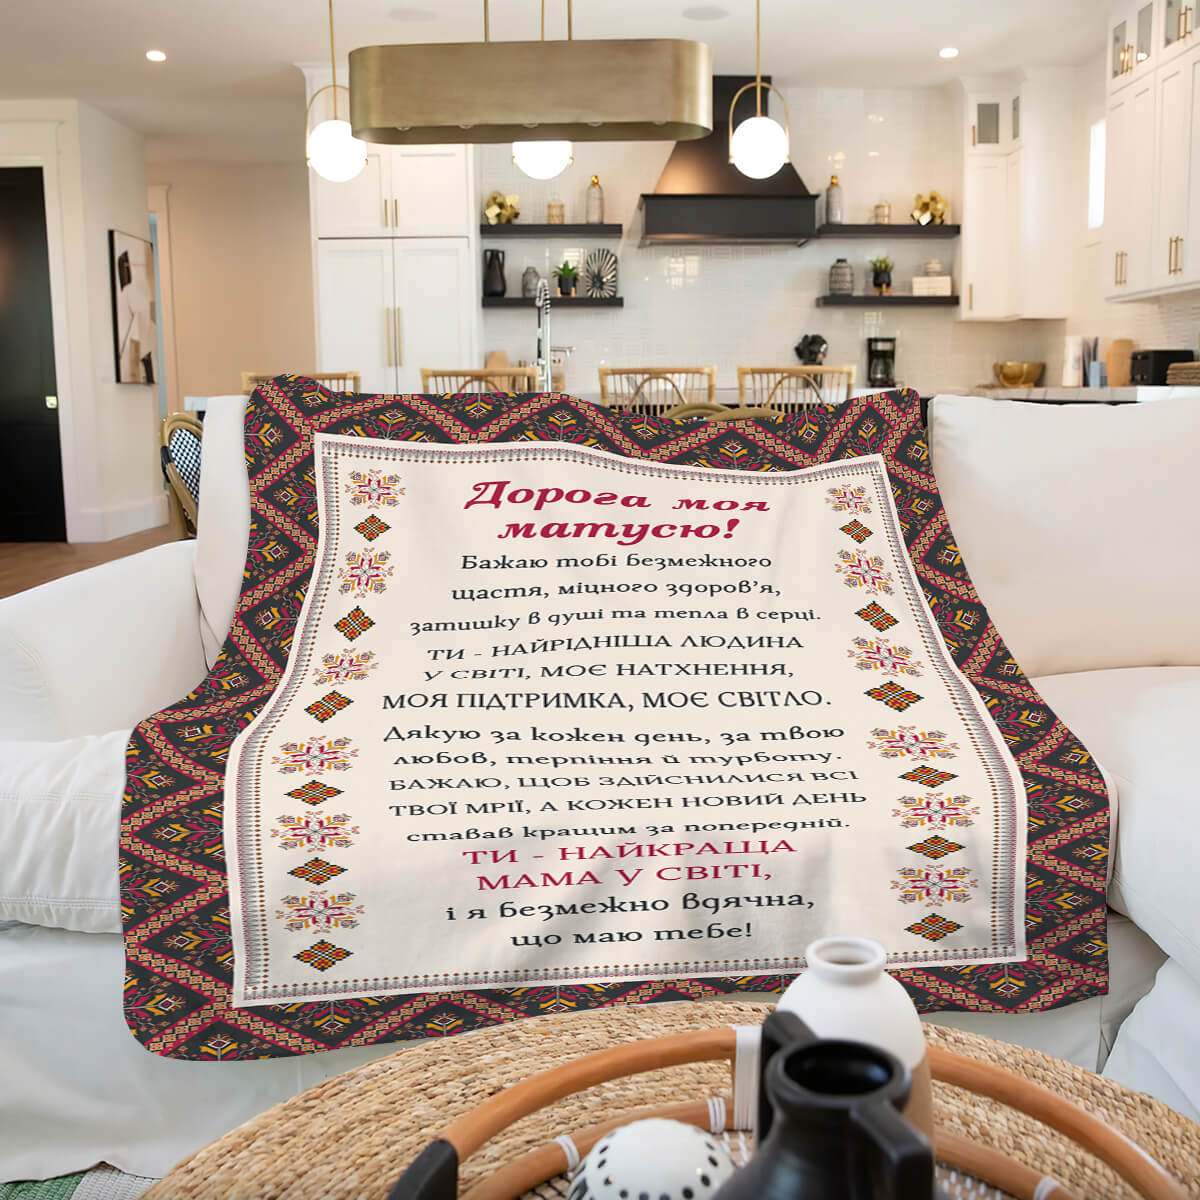 Дорога моя
матусю!
Бажаю тобі безмежного
щастя, міцного здоров'я,
затишку в душі та тепла в серці.
ТИ - НАЙРІДНІША ЛЮДИНА
У СВІТІ, МОЄ НАТХНЕННЯ,
МОЯ ПІДТРИМКА, МОЄ СВІТЛО.
Дякую за кожен день, за твою
любов, терпіння й турботу.
БАЖАЮ, ЩОБ ЗДІЙСНИЛИСЯ ВСІ
ТВОЇ МРІЇ, А КОЖЕН НОВИЙ ДЕНЬ
ставав кращим за попередній.
ТИ - НАЙКРАЩА
МАМА У СВІТІ,
і я безмежно вдячна,
що маю тебе!